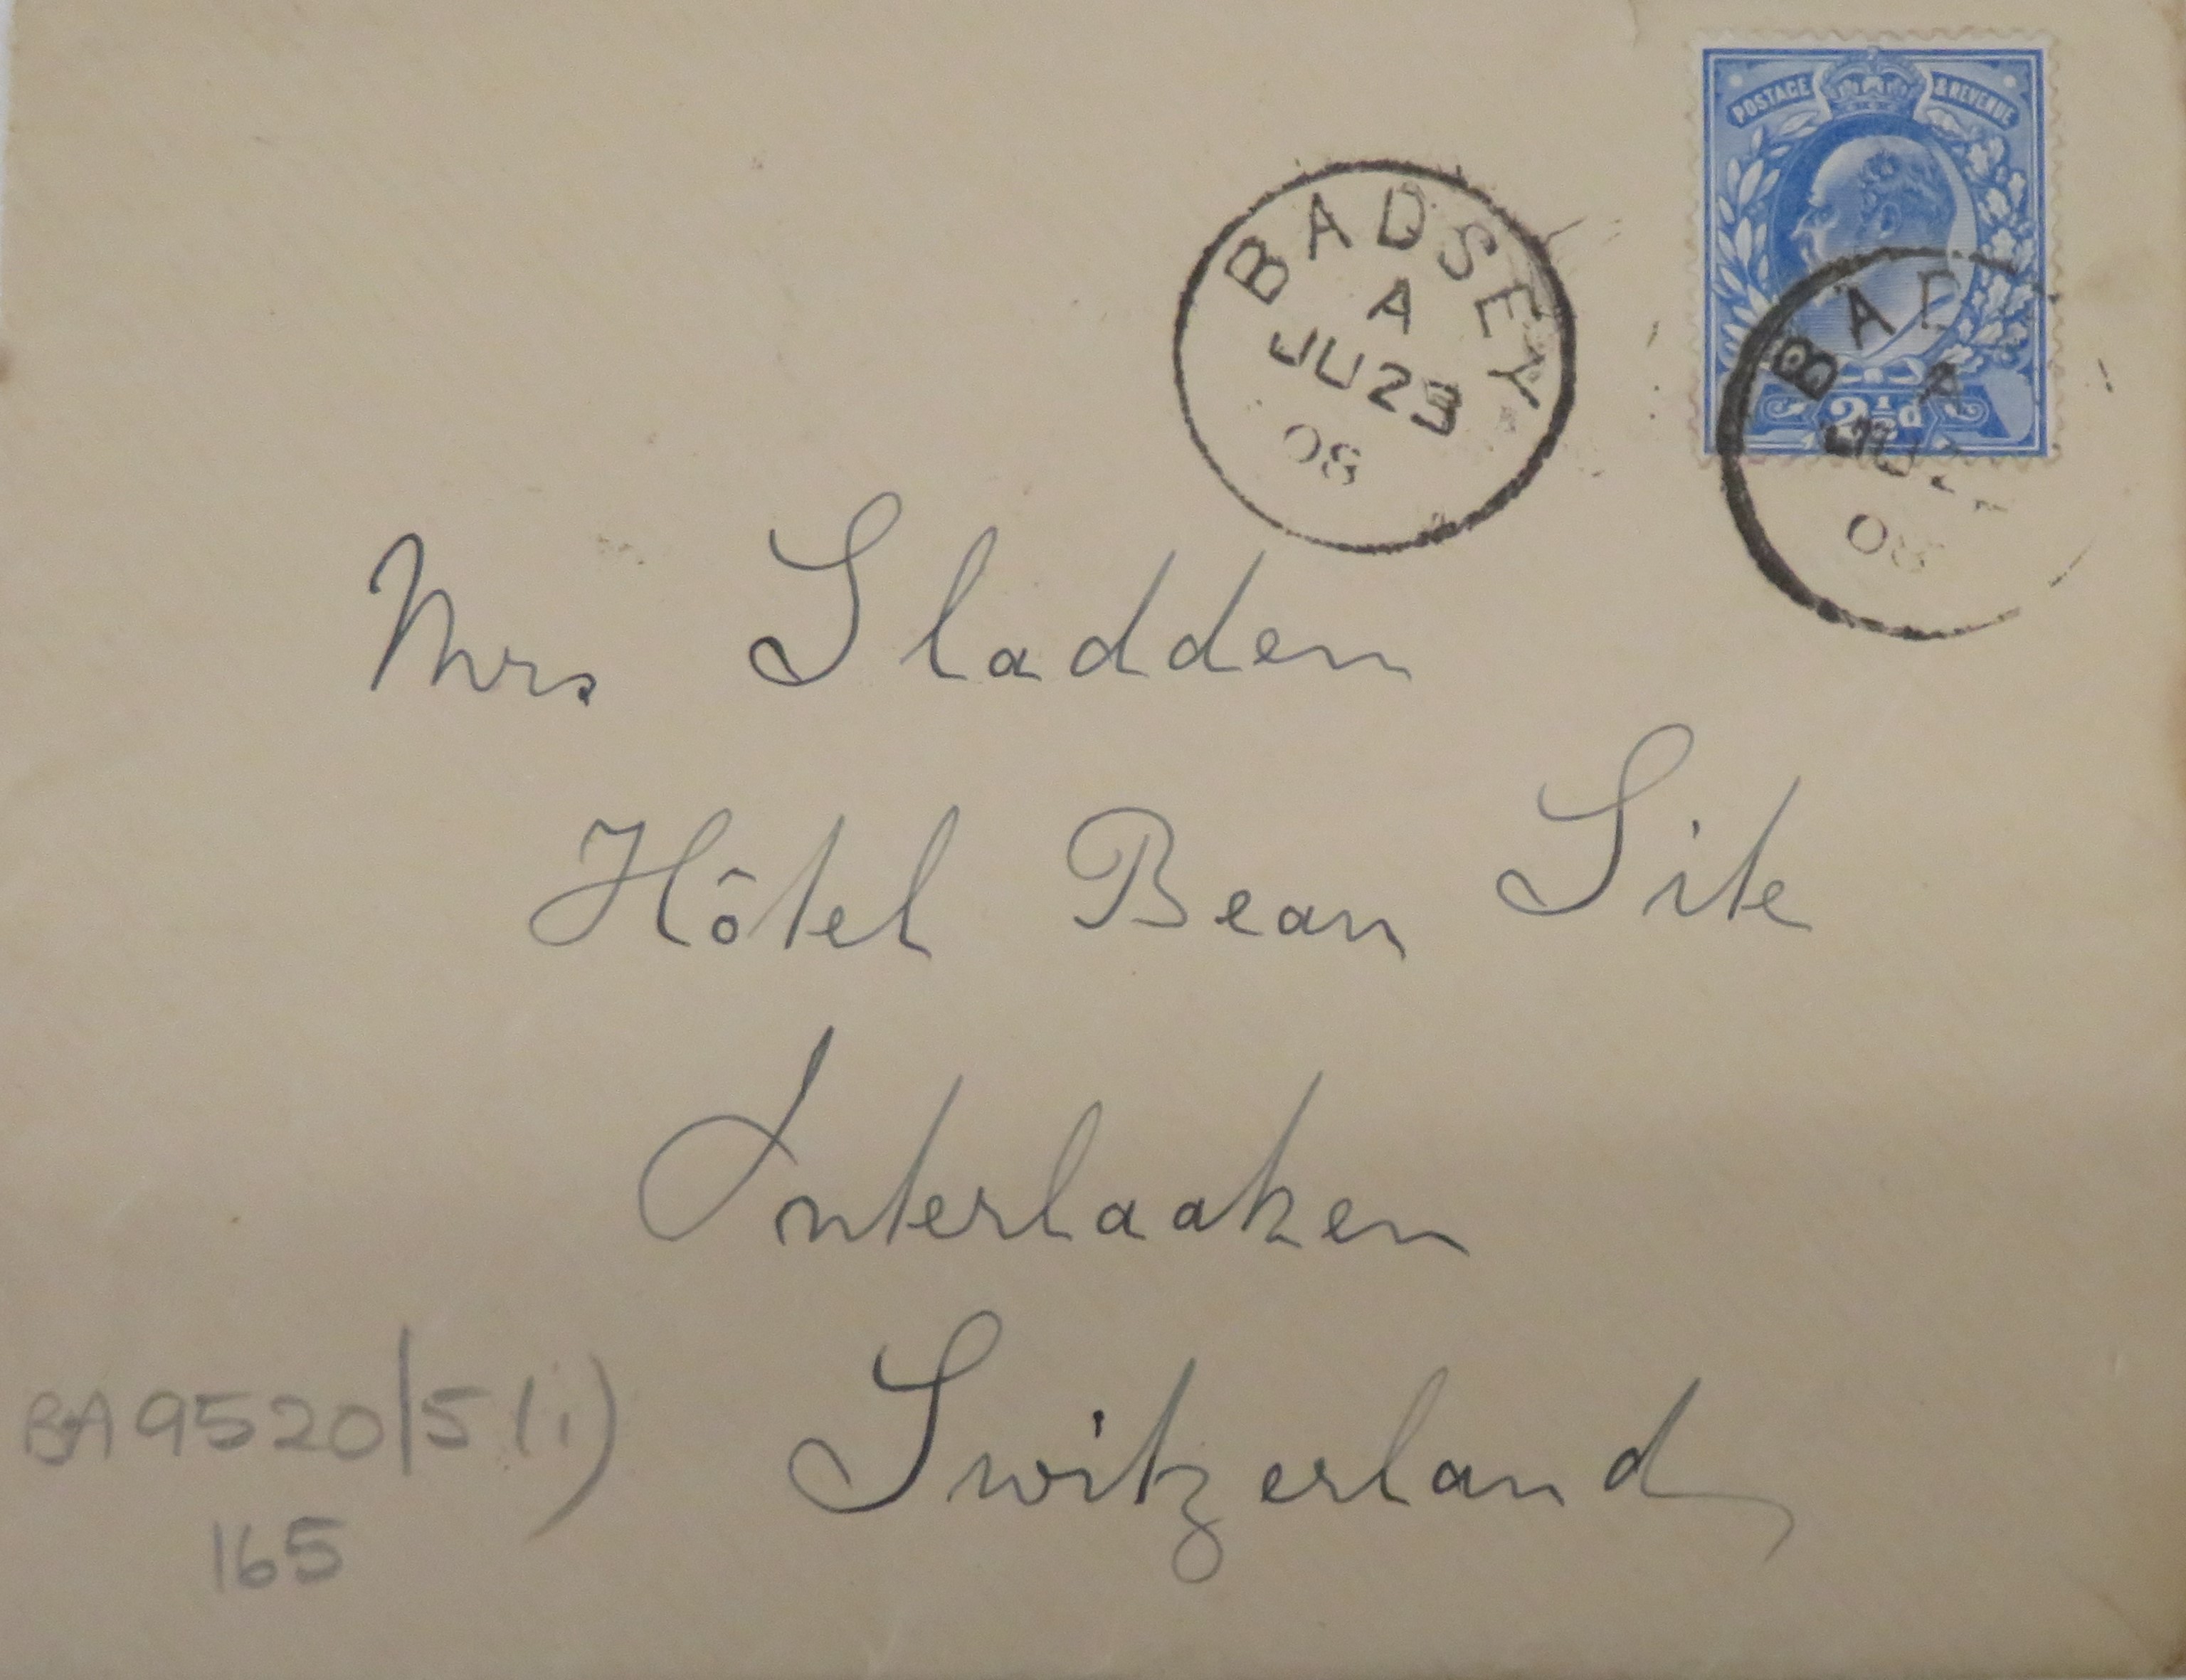 POSTAGE & REVENUE
2½d
BADSEY
A
JU 23
08
BAD
A
JU 2
08
Mrs Sladden
Hôtel Beau Site
Interlaaken
Switzerland
BA9520/5(i)
165